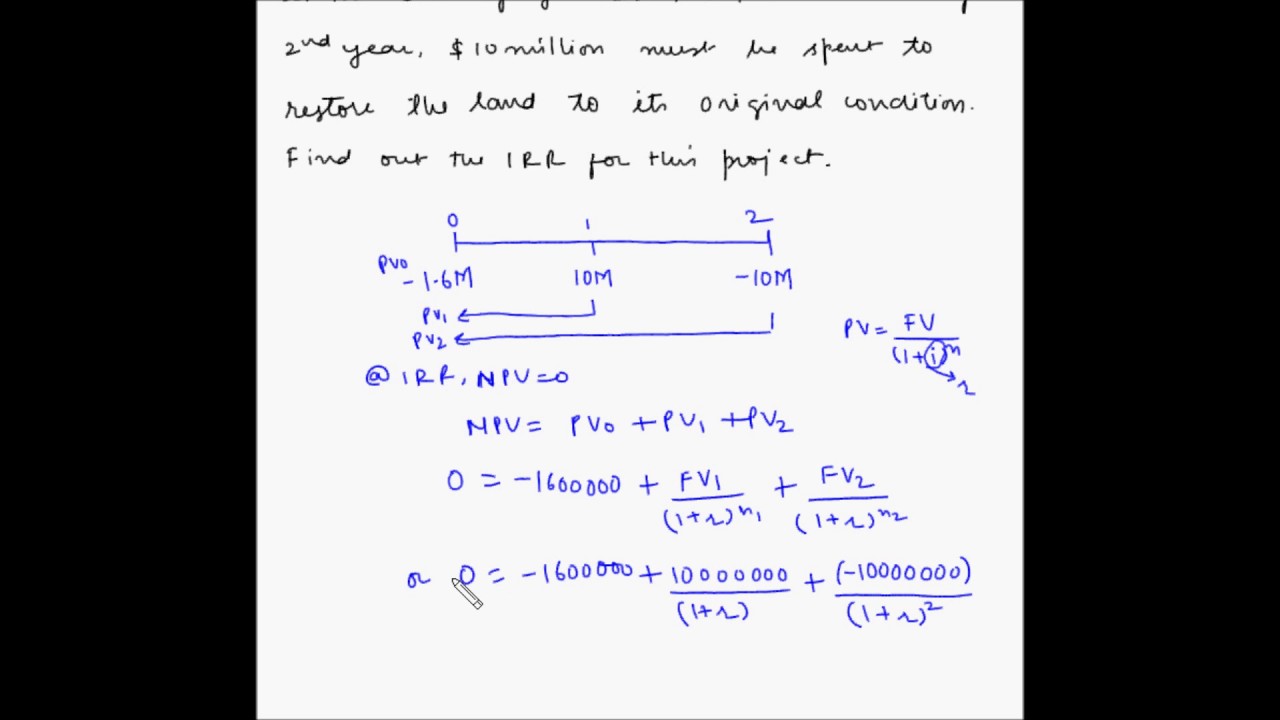 2nd year, $10 million must be spent to
restore the land to its original condition.
Find out the IRR for this project.
0 1 2
PV0 -1.6M 10M -10M
PV1
PV2
PV = FV / (1+i)^n
r
@ IRR, NPV=0
NPV = PV0 + PV1 + PV2
0 = -1600000 + FV1 / (1+r)^n1 + FV2 / (1+r)^n2
or 0 = -1600000 + 10000000 / (1+r) + (-10000000) / (1+r)^2